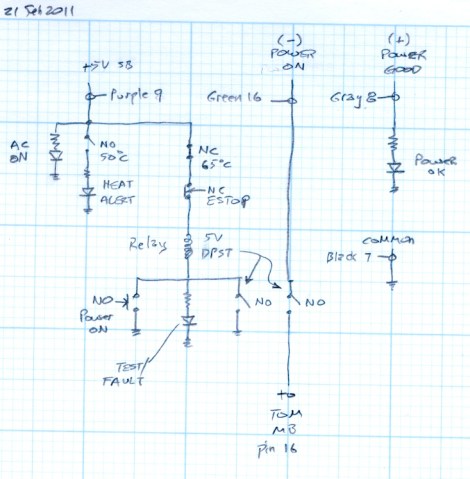 21 Feb 2011
(-)
POWER
ON
(+)
POWER
GOOD
+5V SB
Purple 9
Green 16
Gray 8
AC
ON
NO
50°C
NC
65°C
HEAT
ALERT
NC
ESTOP
POWER
OK
Relay
5V
DPST
COMMON
Black 7
NO
Power
ON
NO
NO
TEST
FAULT
TO
MB
pin 16